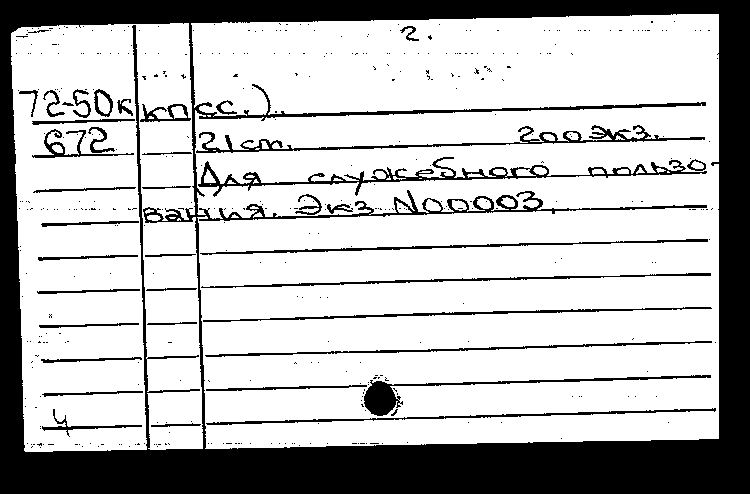 2.
72-50к кпсс.)..
672 21cm. 200экз.
Для служебного пользо-
вания. Экз. N00003.
4